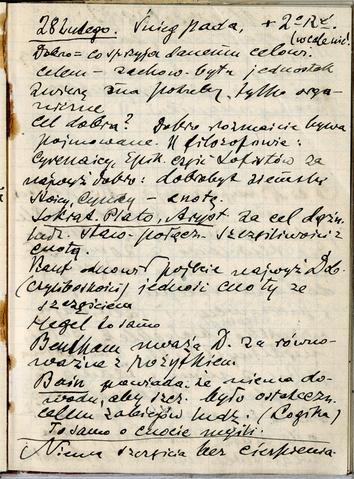 28 Lutego. Śnieg pada, + 2° R.
(wcalenić)
Dobro = co sprzyja danemu celowi.
celem – zachow. bytu jednostek
zwierz. zna potrzeby tylko orga-
niczne
Cel dobra? Dobro rozmaicie bywa
pojmowane. W filozofowie:
Cyrenaicy, Epik. czyli Sofistów za
najwyż. dobro: dobrobyt ziemski
Stoicy, Cynicy – cnotę.
Sokrat. Plato, Aryst za cel dąż.
ludz. staw. połącz. szczęśliwości z
cnotą.
Kant odnowi pojęcie najwyż Dob.
(czyli boskości) jedności cnoty ze
szczęściem
Hegel to samo
Bentham uważa D. za równo-
ważne z pożytkiem
Bain powiada że niema do-
wodu, aby szcz. było ostateczn.
celem zabiegów ludz. (Logika)
To samo o cnocie myśli.
Niema szczęścia bez cierpienia